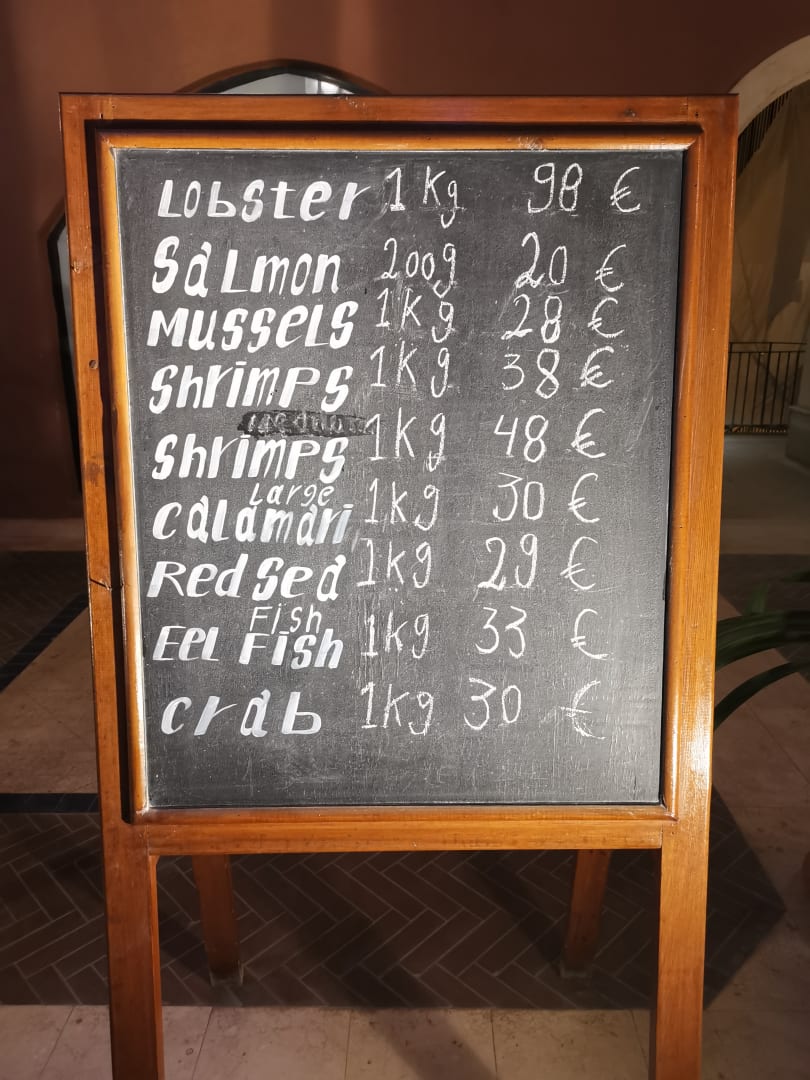 Lobster 1 Kg 98 €
Salmon 200g 20 €
Mussels 1Kg 28 €
Shrimps 1Kg 38 €
Shrimps 1Kg 48 €
Large
Calamari 1Kg 30 €
Red Sea 1Kg 29 €
Fish
Eel Fish 1kg 33 €
Crab 1Kg 30 €